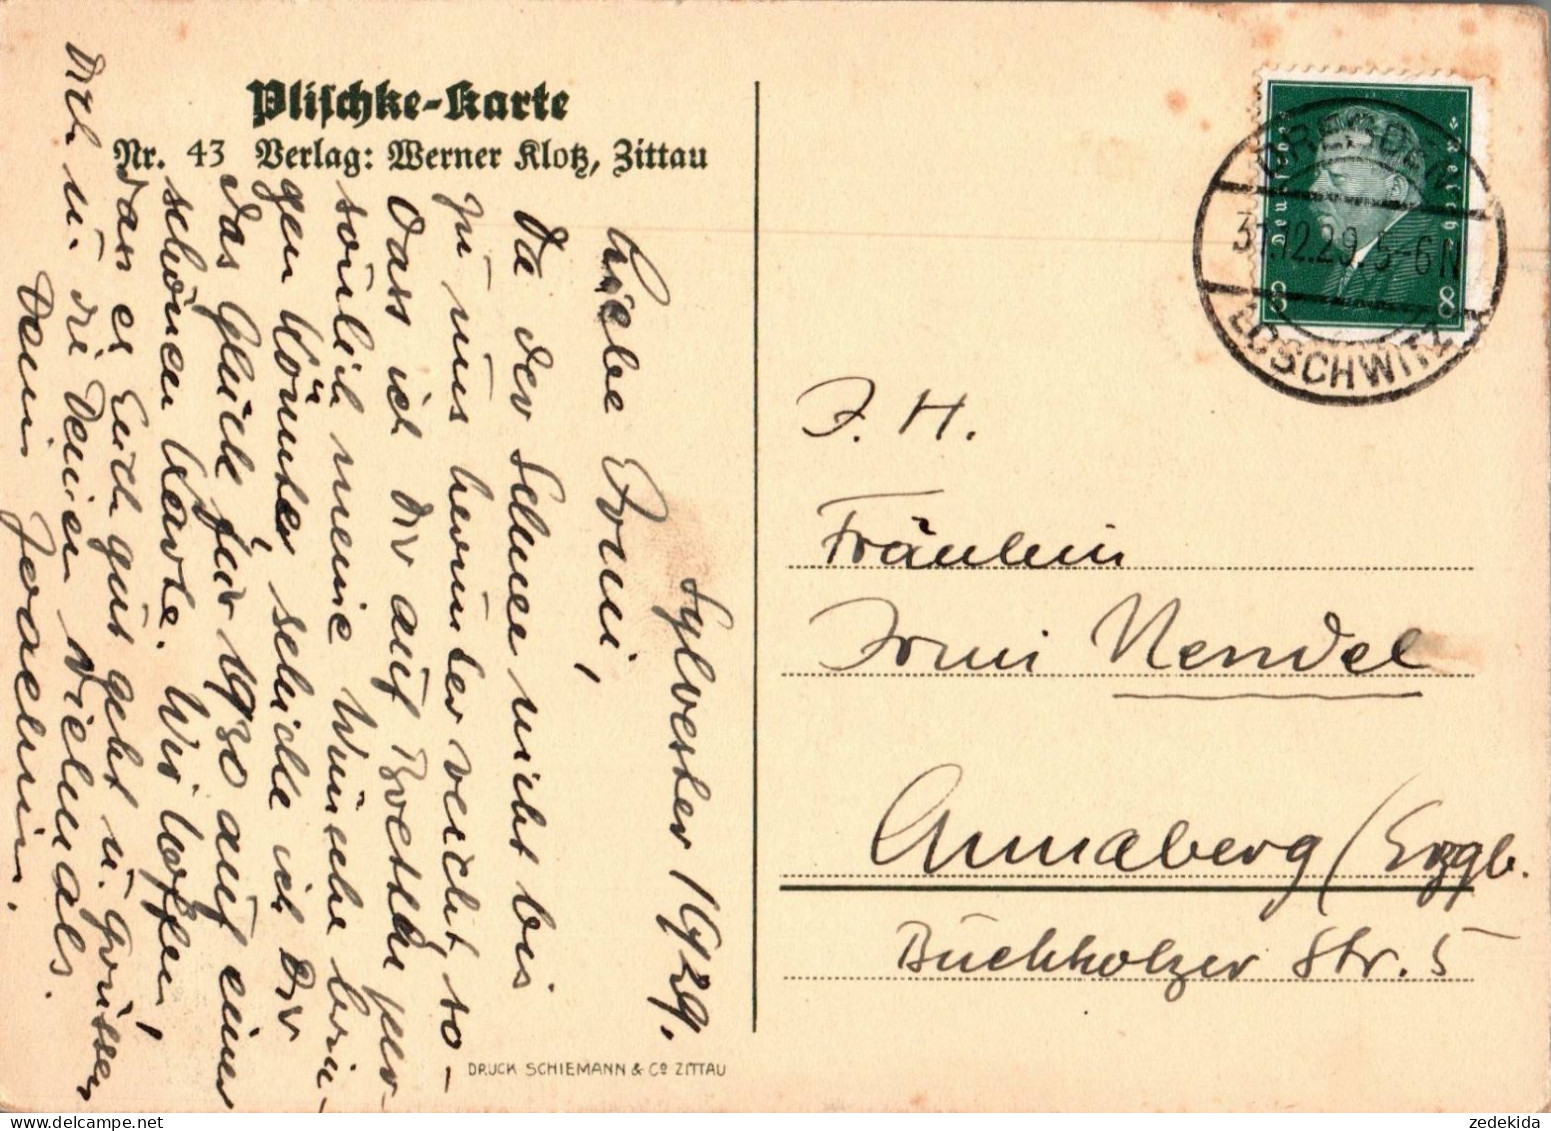 Plischke-Karte
Nr. 43 Verlag: Werner Klotz, Zittau
Sylvester 1929.
Liebe Irmi,
Da der Schnee nicht bis
zu uns herunter reicht, so-
dass ich Dir auf Brettln per-
sönlich meine Wünsche brin-
gen könnte, schicke ich Dir
das Glück für 1930 auf einer
schönen Karte. Wir hoffen,
dass es Euch gut geht u. grüssen
Dich u. die Deinen vielmals.
Dein Joachim.
DRUCK SCHIEMANN & Co ZITTAU
Deutsches Reich
8 8
DRESDEN
31.12.29. 5-6 N
LOSCHWITZ
F. H.
Fräulein
Irmi Nendel
Annaberg / Erzgb.
Buchholzer Str. 5
zedekida